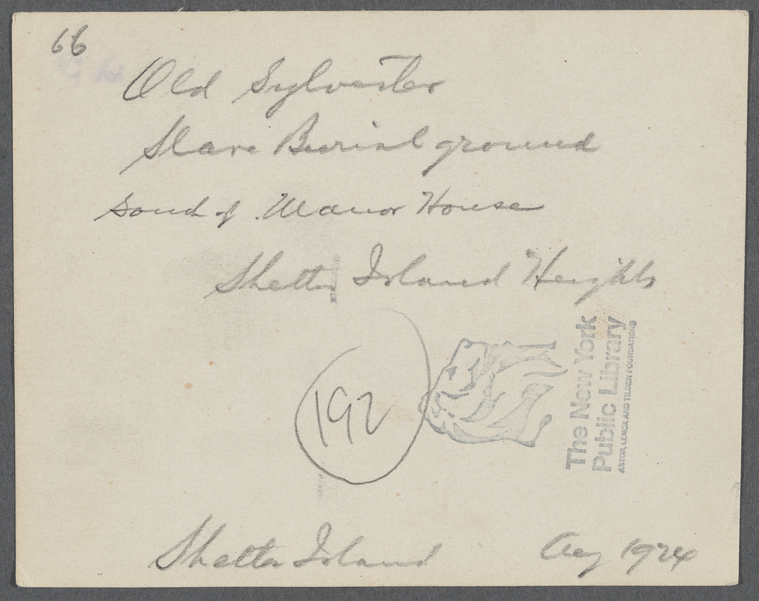 66
Old Sylvester
Slave Burial ground
South of Manor House
Shelter Island Heights
192
The New York
Public Library
ASTOR, LENOX AND TILDEN FOUNDATIONS
Shelter Island Aug 1924